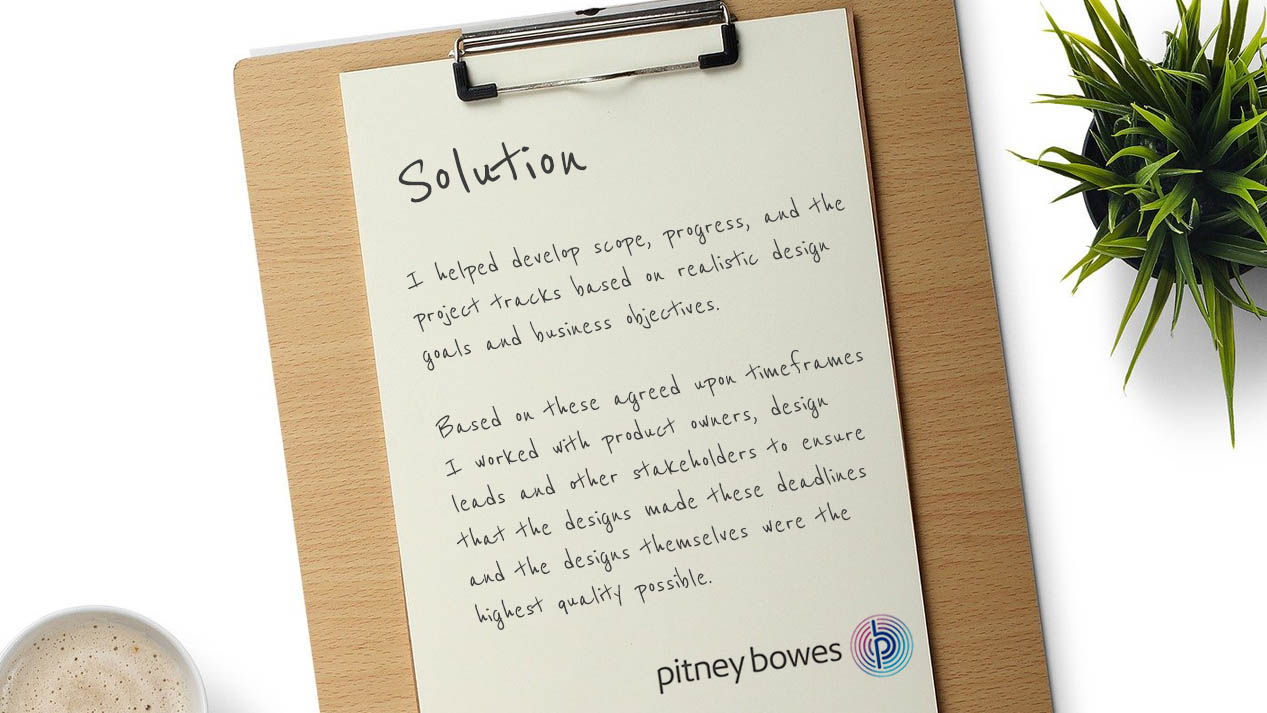 Solution
I helped develop scope, progress, and the
project tracks based on realistic design
goals and business objectives.
Based on these agreed upon timeframes
I worked with product owners, design
leads and other stakeholders to ensure
that the designs made these deadlines
and the designs themselves were the
highest quality possible.
pitney bowes